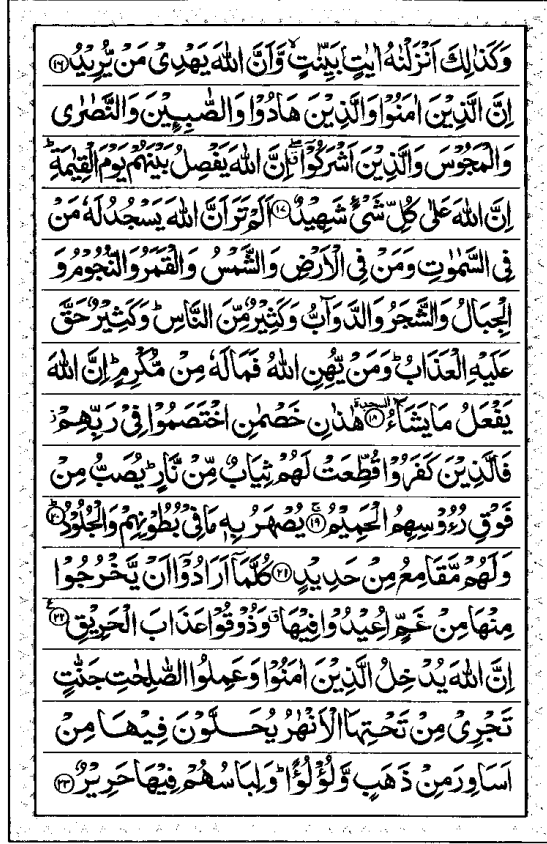 وَكَذٰلِكَ اَنْزَلْنٰهُ اٰيٰتٍۭ بَيِّنٰتٍ ۙ وَّاَنَّ اللّٰهَ يَهْدِىْ مَنْ يُّرِيْدُ ﴿۱۶﴾
اِنَّ الَّذِيْنَ اٰمَنُوْا وَالَّذِيْنَ هَادُوْا وَالصّٰبِـِٕيْنَ وَالنَّصٰرٰى
وَالْمَجُوْسَ وَالَّذِيْنَ اَشْرَكُوْۤا ۖ اِنَّ اللّٰهَ يَفْصِلُ بَيْنَهُمْ يَوْمَ الْقِيٰمَةِ ؕ
اِنَّ اللّٰهَ عَلٰى كُلِّ شَىْءٍ شَهِيْدٌ ﴿۱۷﴾ اَلَمْ تَرَ اَنَّ اللّٰهَ يَسْجُدُ لَهٗ مَنْ
فِى السَّمٰوٰتِ وَمَنْ فِى الْاَرْضِ وَالشَّمْسُ وَالْقَمَرُ وَالنُّجُوْمُ وَ
الْجِبَالُ وَالشَّجَرُ وَالدَّوَآبُّ وَكَثِيْرٌ مِّنَ النَّاسِ ؕ وَكَثِيْرٌ حَقَّ
عَلَيْهِ الْعَذَابُ ؕ وَمَنْ يُّهِنِ اللّٰهُ فَمَا لَهٗ مِنْ مُّكْرِمٍ ؕ اِنَّ اللّٰهَ
يَفْعَلُ مَا يَشَآءُ ﴿۱۸﴾ السجدة هٰذٰنِ خَصْمٰنِ اخْتَصَمُوْا فِىْ رَبِّهِمْ ز
فَالَّذِيْنَ كَفَرُوْا قُطِّعَتْ لَهُمْ ثِيَابٌ مِّنْ نَّارٍ ؕ يُصَبُّ مِنْ
فَوْقِ رُءُوْسِهِمُ الْحَمِيْمُ ﴿۱۹﴾ ۚ يُصْهَرُ بِهٖ مَا فِىْ بُطُوْنِهِمْ وَالْجُلُوْدُ ﴿۲۰﴾ ؕ
وَلَهُمْ مَّقَامِعُ مِنْ حَدِيْدٍ ﴿۲۱﴾ كُلَّمَاۤ اَرَادُوْۤا اَنْ يَّخْرُجُوْا
مِنْهَا مِنْ غَمٍّ اُعِيْدُوْا فِيْهَا ۗ وَذُوْقُوْا عَذَابَ الْحَرِيْقِ ﴿۲۲﴾ ع
اِنَّ اللّٰهَ يُدْخِلُ الَّذِيْنَ اٰمَنُوْا وَعَمِلُوا الصّٰلِحٰتِ جَنّٰتٍ
تَجْرِىْ مِنْ تَحْتِهَا الْاَنْهٰرُ يُحَلَّوْنَ فِيْهَا مِنْ
اَسَاوِرَ مِنْ ذَهَبٍ وَّلُؤْلُؤًا ؕ وَلِبَاسُهُمْ فِيْهَا حَرِيْرٌ ﴿۲۳﴾